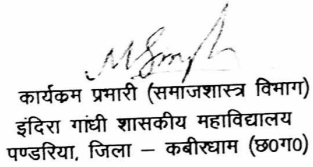 कार्यक्रम प्रभारी (समाजशास्त्र विभाग)
इंदिरा गांधी शासकीय महाविद्यालय
पण्डरिया, जिला – कबीरधाम (छ०ग०)